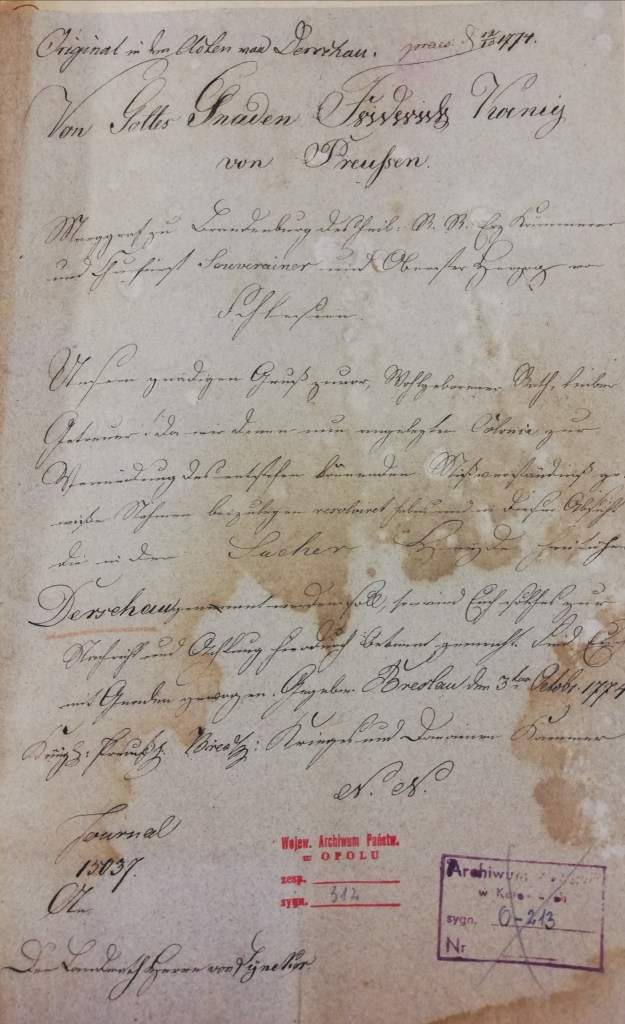 Original in den Acten von Derschau. praes: d 12/10 1774.
Von Gottes Gnaden Friderich Koenig
von Preussen.
Marggraf zu Brandenburg des Heil: R. R. Ertz Kämmerer
und Churfürst Souverainer und Oberster Herzog von
Schlesien.
Unsern gnädigen Gruß zuvor, Wohlgebohrner Rath, lieber
Getreuer! da wir denen neu angelegten Colonie zur
Vermeidung des entstehen könnenden Mißverständniß ge
wiße Nahmen beizulegen resolviret haben und in dieser Absicht
die in der Sacher Heyde
Derschau genannt werden soll, so wird Euch solches zur
Nachricht und Achtung hierdurch bekannt gemacht. Sind Euch
mit Gnaden gewogen. Gegeben Breslau den 3ten Octobr. 1774
Königl: Preuß. Bresl: Krieges und Domainen Kammer
N. N.
Journal
15037.
An
Den Landrath Herrn von
Wojew. Archiwum Państw.
w OPOLU
zesp.
sygn. 312
Archiwum
w
sygn. 0-213
Nr